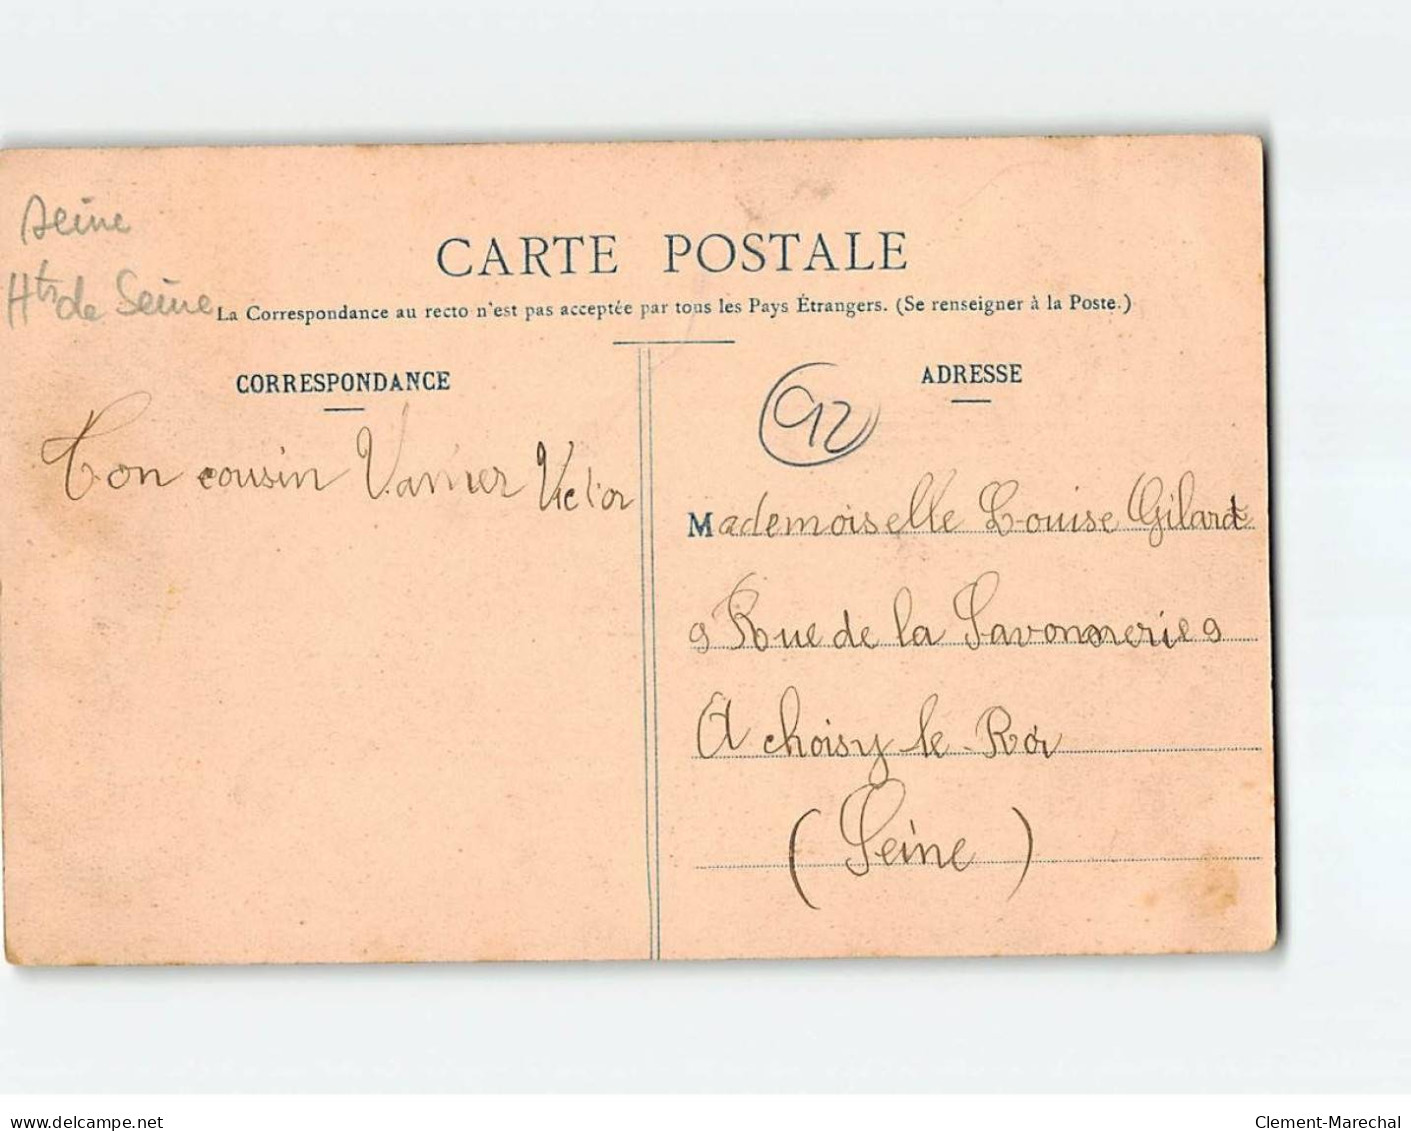 Seine
Hts de Seine
CARTE POSTALE
La Correspondance au recto n'est pas acceptée par tous les Pays Étrangers. (Se renseigner à la Poste.)
CORRESPONDANCE
ADRESSE
92
Ton cousin Victor
Mademoiselle Louise Gilard
9 Rue de la Savonnerie 9
A choisy-le-Roi
(Seine)
www.delcampe.net
Clement-Marechal